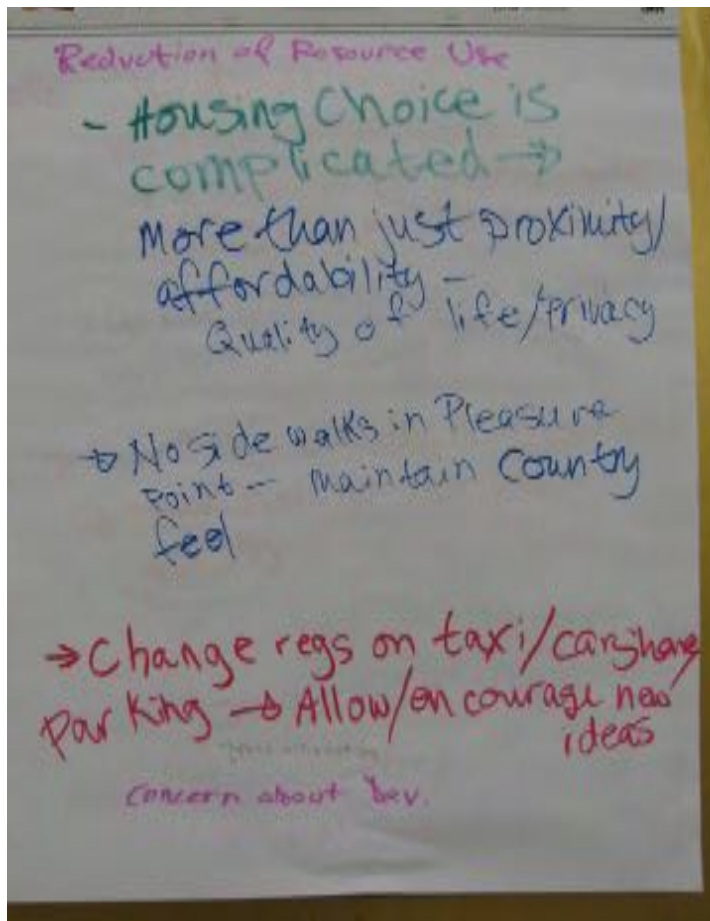 Reduction of Resource Use
- Housing Choice is
complicated →
More than just proximity/
affordability -
Quality of life/privacy
→ No side walks in Pleasure
Point -- maintain Country
feel
→ Change regs on taxi/carshare/
parking → Allow/encourage new
ideas
Concern about Dev.